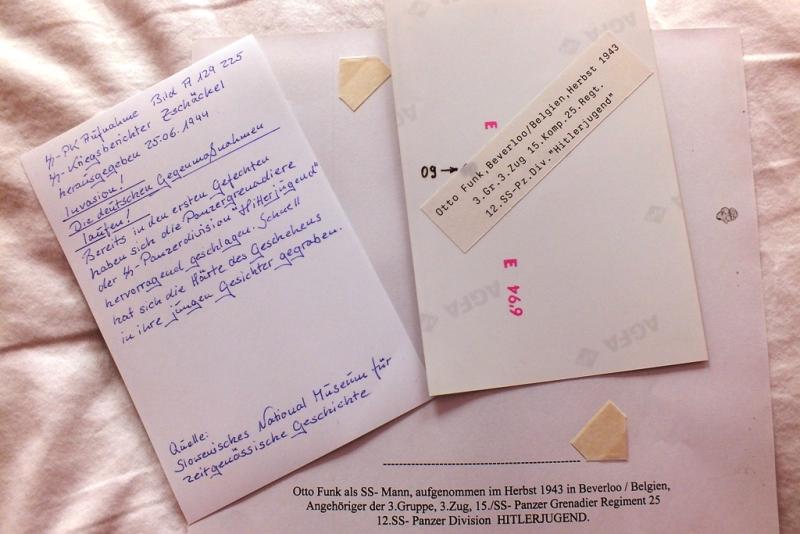 SS-PK Aufnahme Bild A 129 225
SS-Kriegsberichter Zschäckel
herausgegeben 25.06.1944
Invasion!
Die deutschen Gegenmaßnahmen
laufen!
Bereits in den ersten Gefechten
haben sich die Panzergrenadiere
der SS-Panzerdivision "Hitlerjugend"
hervorragend geschlagen. Schnell
hat sich die Härte des Geschehens
in ihre jungen Gesichter gegraben.
Quelle:
Slowenisches National Museum für
zeitgenössische Geschichte
AGFA
E
09 →
Otto Funk, Beverloo/Belgien, Herbst 1943
3.Gr.3.Zug 15.Komp.25.Regt.
12.SS-Pz.Div."Hitlerjugend"
E
6'94
AGFA
AGFA
Otto Funk als SS- Mann, aufgenommen im Herbst 1943 in Beverloo / Belgien,
Angehöriger der 3.Gruppe, 3.Zug, 15./SS- Panzer Grenadier Regiment 25
12.SS- Panzer Division HITLERJUGEND.